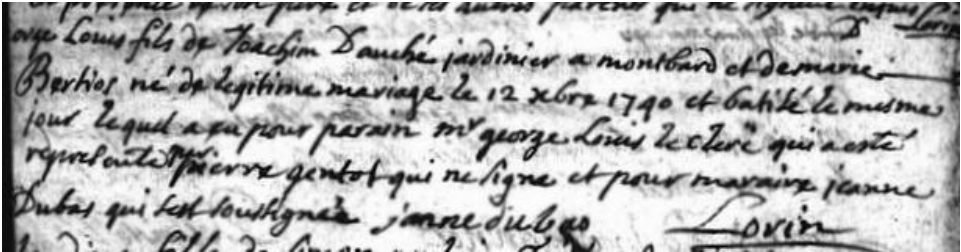 presence de son pere et de ses autres parens qui ne signent enquis Lorin
D
orge Louis fils de Joachim Dauché jardinier a montbard et de marie
Bertios né de legitime mariage le 12 xbre 1740 et batisé le mesme
jour lequel a eu pour parain mr george Louis le clerc qui a esté
representé par pierre gentot qui ne signe et pour maraine jeanne
Dubas qui s'est soussignée janne dubas Lorin
fille de simon